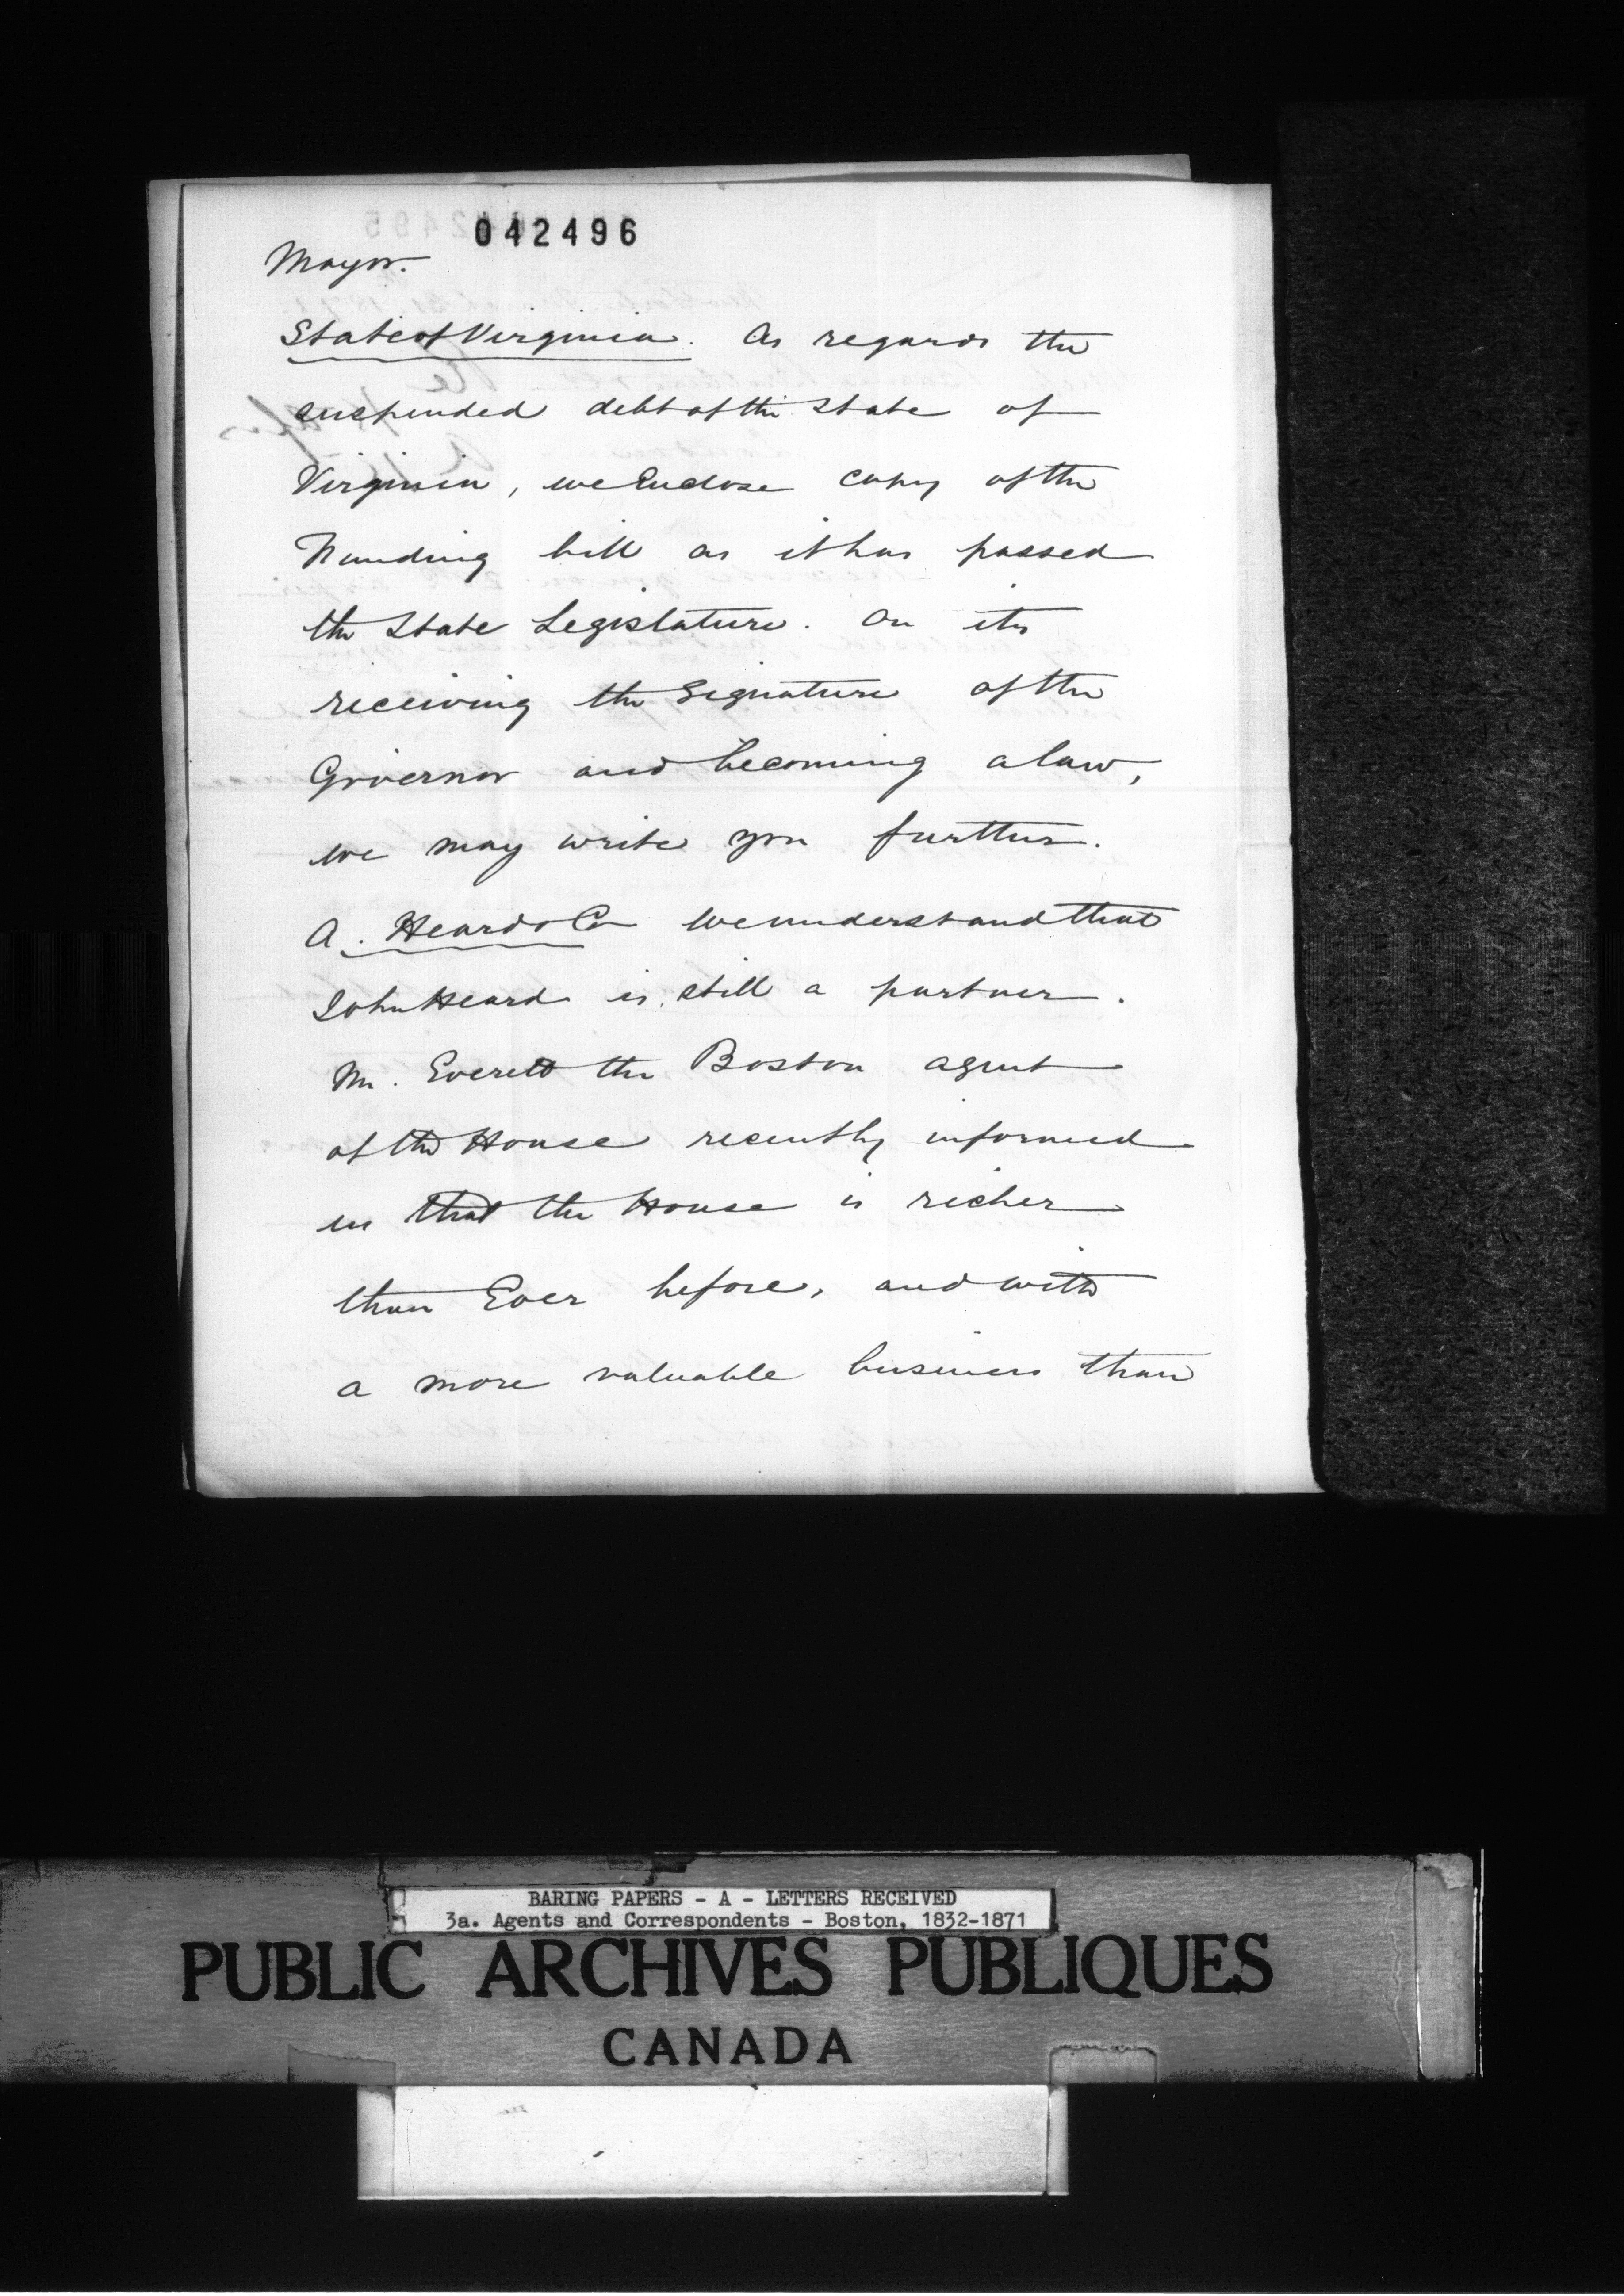 042496
Mayor.
State of Virginia. As regards the
suspended debt of the State of
Virginia, we Enclose copy of the
Funding bill as it has passed
the State Legislature. On its
receiving the Signature of the
Governor and becoming a law,
we may write you further.
A. Heard & Co We understand that
John Heard is still a partner.
Mr. Everett the Boston agent
of the House recently informed
us that the House is richer
than Ever before, and with
a more valuable business than
BARING PAPERS - A - LETTERS RECEIVED
3a. Agents and Correspondents - Boston, 1832-1871
PUBLIC ARCHIVES PUBLIQUES
CANADA